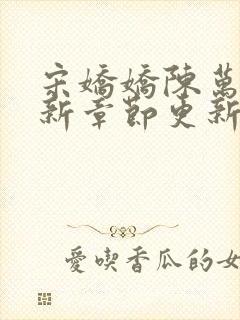 宋嬌嬌陳萬
新章節更新
愛喫香瓜的女